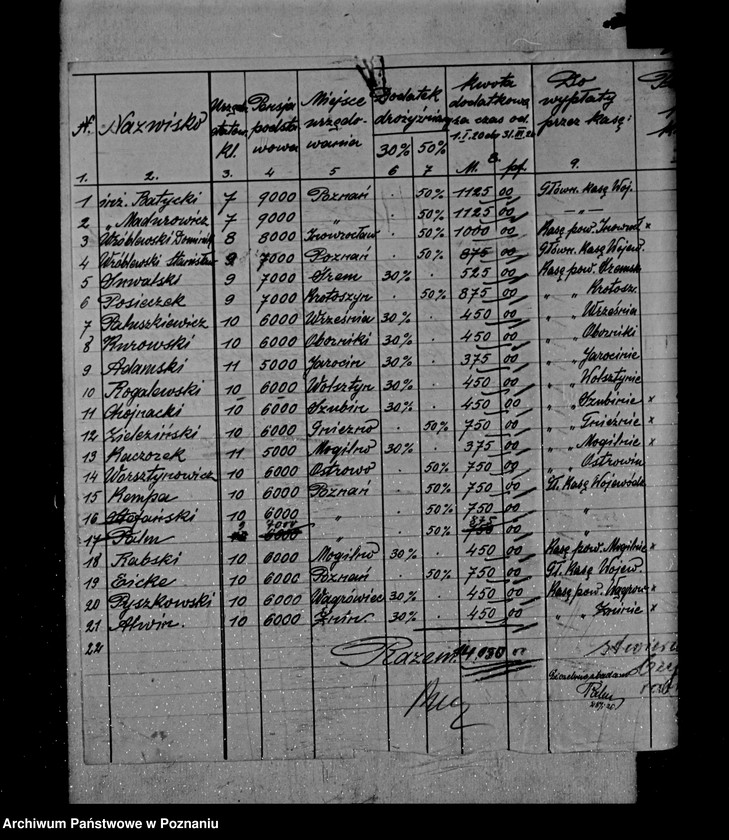 N. Nazwisko Urzęd. Pensja podstawowa Miejsce urzędowania Dodatek drożyźniany Kwota dodatkowa za czas od Do wypłaty przez kasę:
kl. 30% 50% M. pf.
1. 2. 3. 4 5 6 7 8. 9.
1 inż. Batycki 7 9000 Poznań . 50% 1125 00 Główn. Kasę Woj.
2 „ Madurowicz 7 9000 „ . 50% 1125 00 — „ —
3 Wróblewski Dominik 8 8000 Inowrocław . 50% 1000 00 Kasę pow. Inowrocł ×
4 Wróblewski Stanisław 9 7000 Poznań . 50% 875 00 Główn. Kasę Wojew.
5 Suwalski 9 7000 Śrem 30% . 525 00 Kasę pow. Śremsk
6 Posieczek 9 7000 Krotoszyn . 50% 875 00 „ „ Krotosz.
7 Paluszkiewicz 10 6000 Września 30% . 450 00 „ „ Września
8 Kurowski 10 6000 Oborniki 30% . 450 00 „ „ Oborniki
9 Adamski 11 5000 Jarocin 30% . 375 00 „ „ Jarocinie
10 Rogalewski 10 6000 Wolsztyn 30% . 450 00 „ „ Wolsztynie
11 Chojnacki 10 6000 Szubin 30% . 450 00 „ „ Szubinie ×
12 Zieleziński 10 6000 Gniezno . 50% 750 00 „ „ Gnieźnie ×
13 Kaczorek 11 5000 Mogilno 30% . 375 00 „ „ Mogilnie ×
14 Warsztynowicz 10 6000 Ostrowo . 50% 750 00 „ „ Ostrowiu
15 Kempa 10 6000 Poznań . 50% 750 00 Gł. Kasę Wojewódz
16 Stefański 10 6000 „ . 50% 750 00 „
17 Palm 9 7000 „ . 50% 875 00 „
18 Rabski 10 6000 Mogilno 30% . 450 00 Kasę pow. Mogilnie ×
19 Eicke 10 6000 Poznań . 50% 750 00 Gł. Kasę Wojew.
20 Pyszkowski 10 6000 Wągrówiec 30% . 450 00 Kasę pow. Wągrow ×
21 Alwin. 10 6000 Żnin 30% . 450 00 „ „ Żninie ×
22
Razem:
Archiwum Państwowe w Poznaniu